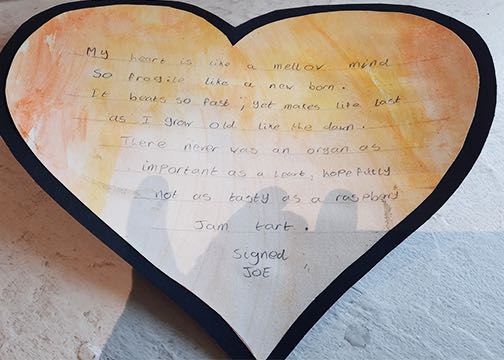 My heart is like a mellov mind
So fragile like a new born.
It beats so fast, yet makes life last
as I grow old like the dawn.
There never was an organ as
important as a heart, hopefully
not as tasty as a raspberry
Jam tart.
Signed
JOE